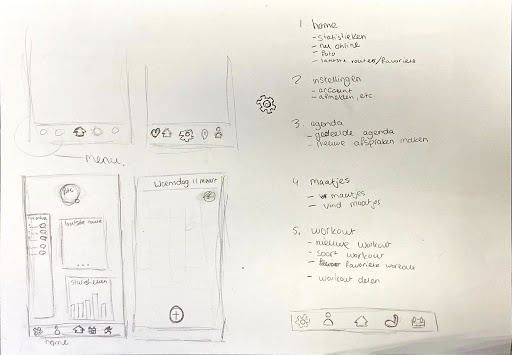 menu
Woensdag 11 maart
laatste route
statistieken
home
1 home
- statistieken
- nu online
- foto
- laatste routes/favoriete
2 instellingen
- account
- afmelden, etc.
3. agenda
- gedeelde agenda
- nieuwe afspraken maken
4 maatjes
- maatjes
- vind maatjes
5. workout
- nieuwe workout
- soort workout
- favoriete workout
- workout delen